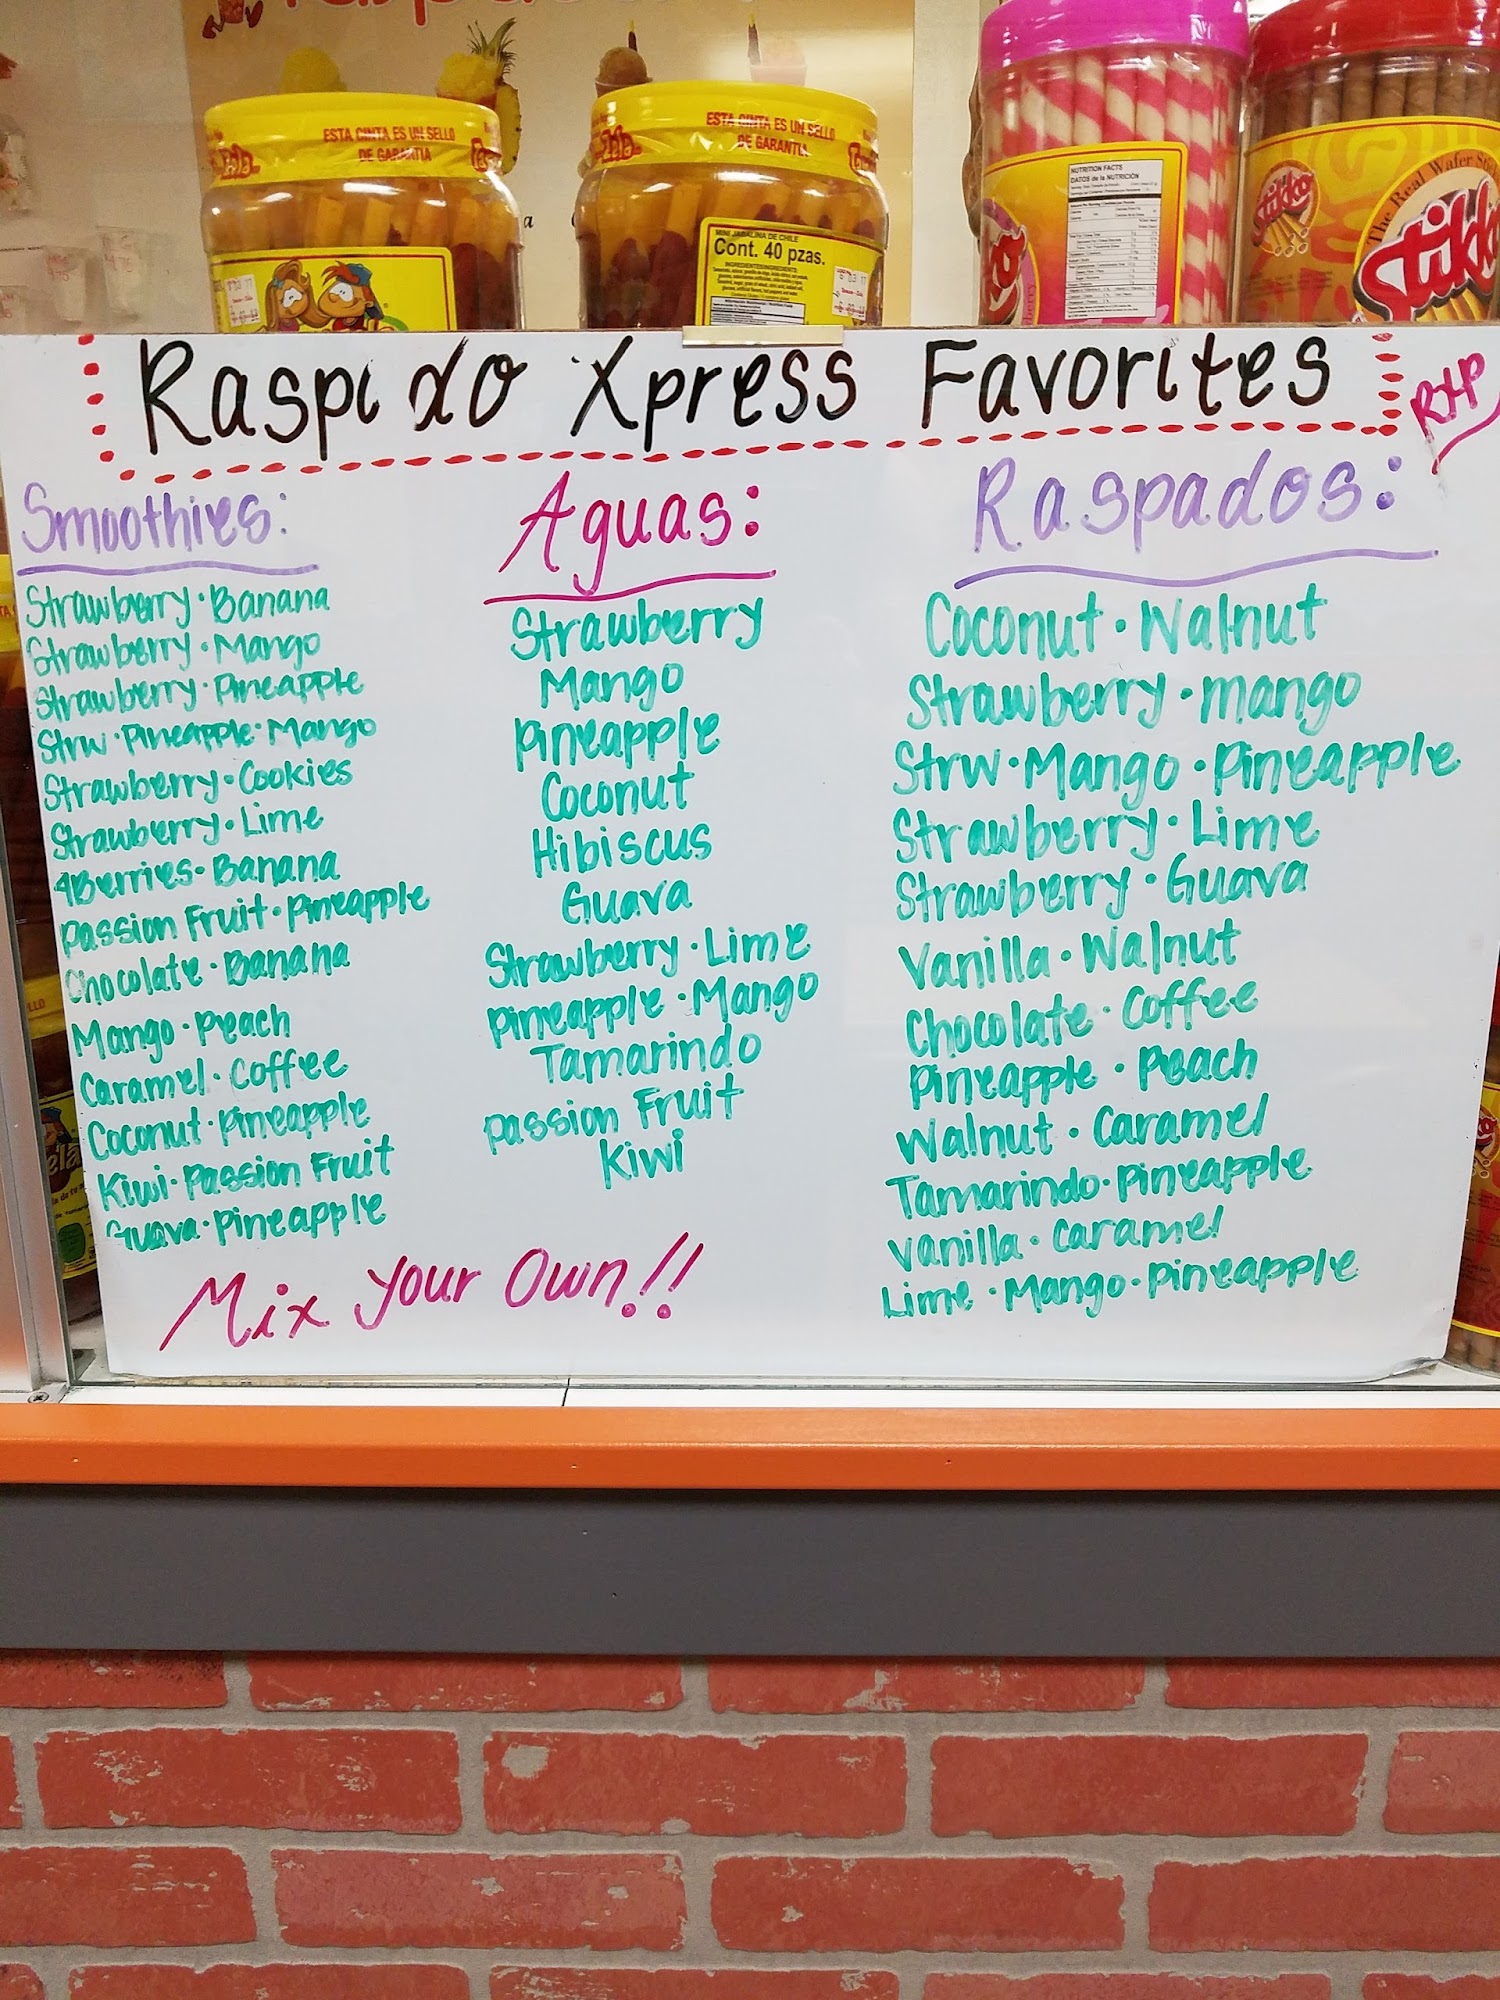 ESTA CINTA ES UN SELLO
DE GARANTIA
ESTA CINTA ES UN SELLO
DE GARANTIA
MINI JABALINA DE CHILE
Cont. 40 pzas.
INGREDIENTES/INGREDIENTS:
NUTRITION FACTS
DATOS de la NUTRICIÓN
Stikko
The Real Wafer
Stikko
Raspido Xpress Favorites
RXP
Smoothies:
Strawberry·Banana
Strawberry·Mango
Strawberry·Pineapple
Strw·Pineapple·Mango
Strawberry·Cookies
Strawberry·Lime
4Berries·Banana
Passion Fruit·Pineapple
Chocolate·Banana
Mango·Peach
Caramel·Coffee
Coconut·Pineapple
Kiwi·Passion Fruit
Guava·Pineapple
Aguas:
Strawberry
Mango
Pineapple
Coconut
Hibiscus
Guava
Strawberry·Lime
Pineapple·Mango
Tamarindo
Passion Fruit
Kiwi
Raspados:
Coconut·Walnut
Strawberry·mango
Strw·Mango·Pineapple
Strawberry·Lime
Strawberry·Guava
Vanilla·Walnut
Chocolate·Coffee
Pineapple·Peach
Walnut·Caramel
Tamarindo·Pineapple
Vanilla·Caramel
Lime·Mango·Pineapple
Mix Your Own!!